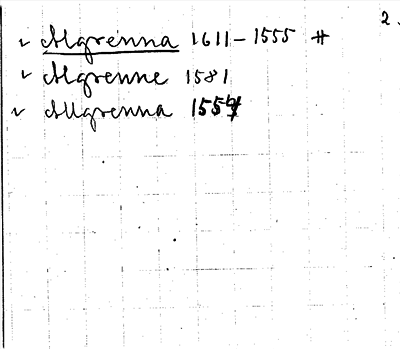 2.
✓ Algrenna 1611-1555 #
✓ Algrenne 1581
✓ Allgrenna